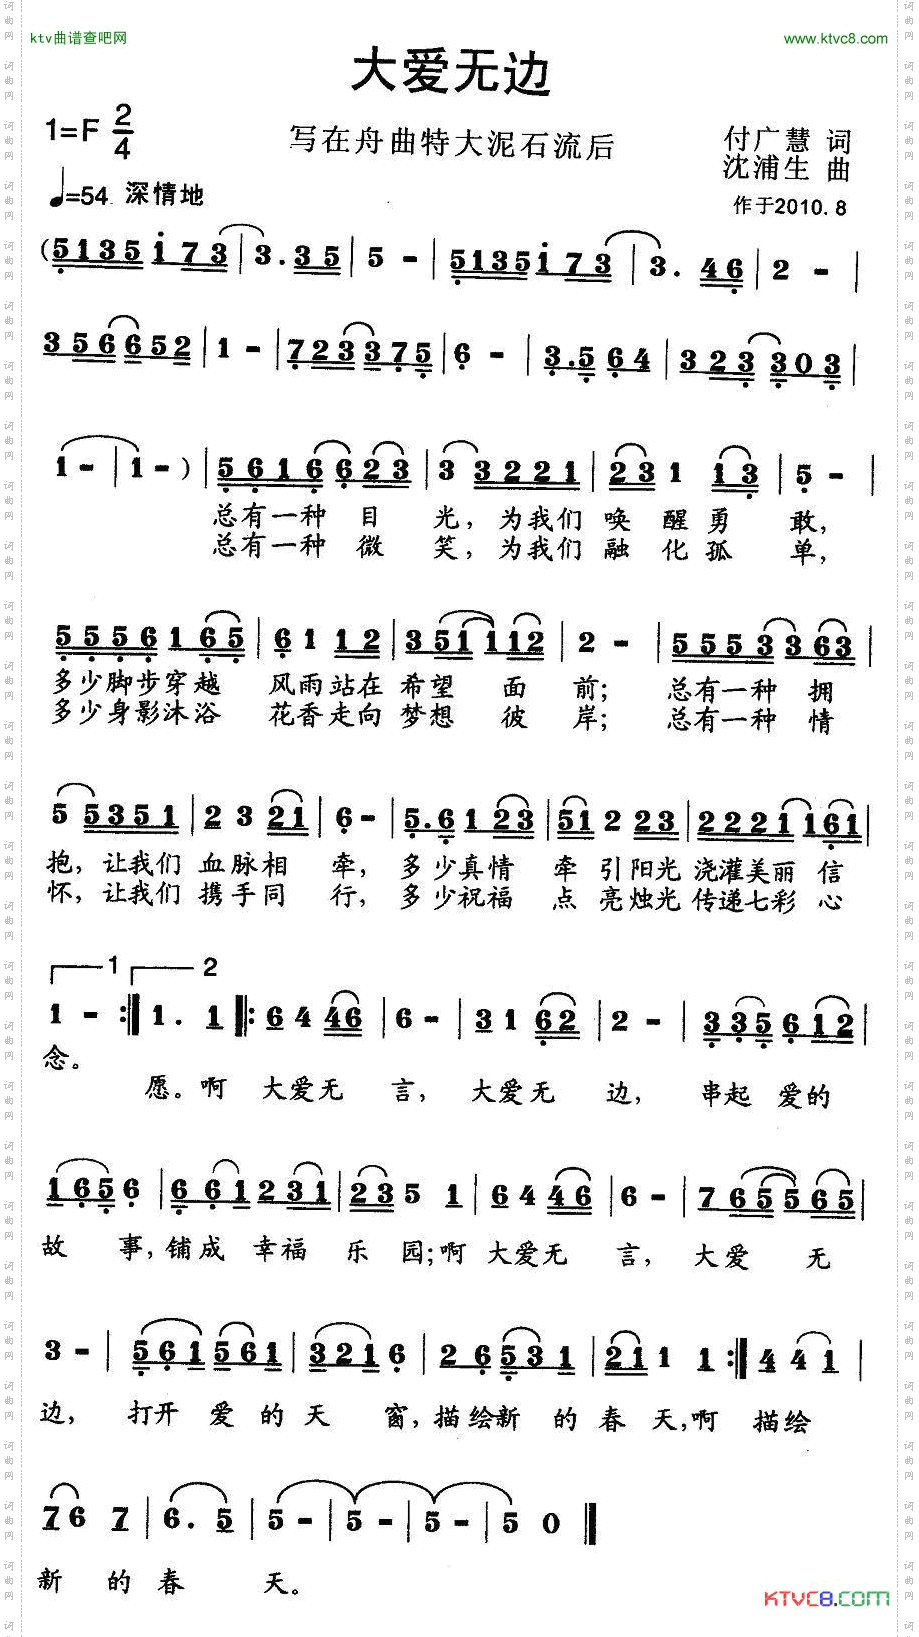 ktv曲谱查吧网
www.ktvc8.com
大爱无边
1=F 2/4
写在舟曲特大泥石流后
付广慧 词
沈浦生 曲
♩=54 深情地
作于2010.8
(5135 i 73 | 3.35 | 5 - | 5135 i 73 | 3. 46 | 2 - |
356 652 | 1 - | 723 375 | 6 - | 3.5 64 | 323 303 |
1 - | 1 - ) | 5616 623 | 3 3221 | 231 13 | 5 - |
总有一种 目 光, 为我们 唤 醒勇 敢,
总有一种 微 笑, 为我们 融 化孤 单,
5556 165 | 61 12 | 351 112 | 2 - | 5553 363 |
多少脚步穿越 风雨站在 希望 面 前; 总有一种 拥
多少身影沐浴 花香走向 梦想 彼 岸; 总有一种 情
5 5351 | 23 21 | 6 - | 5.6 123 | 51 2 23 | 2221 161 |
抱, 让我们 血脉相 牵, 多少真情 牵 引阳光 浇灌美丽 信
怀, 让我们 携手同 行, 多少祝福 点 亮烛光 传递七彩 心
1 2
1 - :‖ 1. 1 ‖: 64 46 | 6 - | 31 62 | 2 - | 335 612 |
念。
愿。啊 大爱无 言, 大爱无 边, 串起 爱的
165 6 | 661 231 | 235 1 | 64 46 | 6 - | 765 565 |
故 事, 铺成 幸福 乐 园; 啊 大爱无 言, 大爱 无
3 - | 561 561 | 321 6 | 26 531 | 211 1 :‖ 4 41 |
边, 打开 爱的天 窗, 描绘新 的春天, 啊 描绘
76 7 | 6. 5 | 5 - | 5 - | 5 - | 5 0 ‖
新 的 春 天。
KTVC8.COM